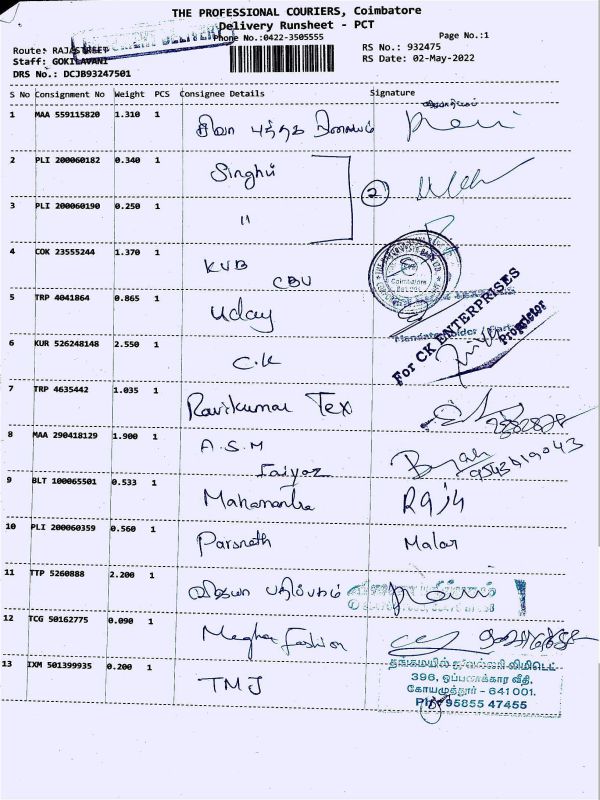 THE PROFESSIONAL COURIERS, Coimbatore
Delivery Runsheet - PCT
Phone No.:0422-3505555
Page No.:1
Route: RAJASTREET
RS No.: 932475
Staff: GOKILAVANI
RS Date: 02-May-2022
DRS No.: DCJB93247501
S No Consignment No Weight PCS Consignee Details Signature
1 MAA 559115820 1.310 1 சிவா புத்தக நிலையம்
2 PLI 200060182 0.340 1 Singhvi
2
3 PLI 200060190 0.250 1 "
4 COK 23555244 1.370 1 KVB
CBU
5 TRP 4041864 0.865 1 Uday
6 KUR 526248148 2.550 1 C.K
For CK ENTERPRISES
Proprietor
7 TRP 4635442 1.035 1 Ravikumar Tex
8 MAA 290418129 1.900 1 A.S.M
Faiyoz
9 BLT 100065501 0.533 1 Mahamantra
10 PLI 200060359 0.560 1 Parsnath Malar
11 TTP 5260888 2.200 1 விஜயா பதிப்பகம்
12 TCG 50162775 0.090 1 Megha fashion
13 IXM 501399935 0.200 1 TMJ
தங்கமயில் ஜுவல்லரி லிமிடெட்
396, ஒப்பணக்கார வீதி,
கோயமுத்தூர் - 641 001.
95855 47455